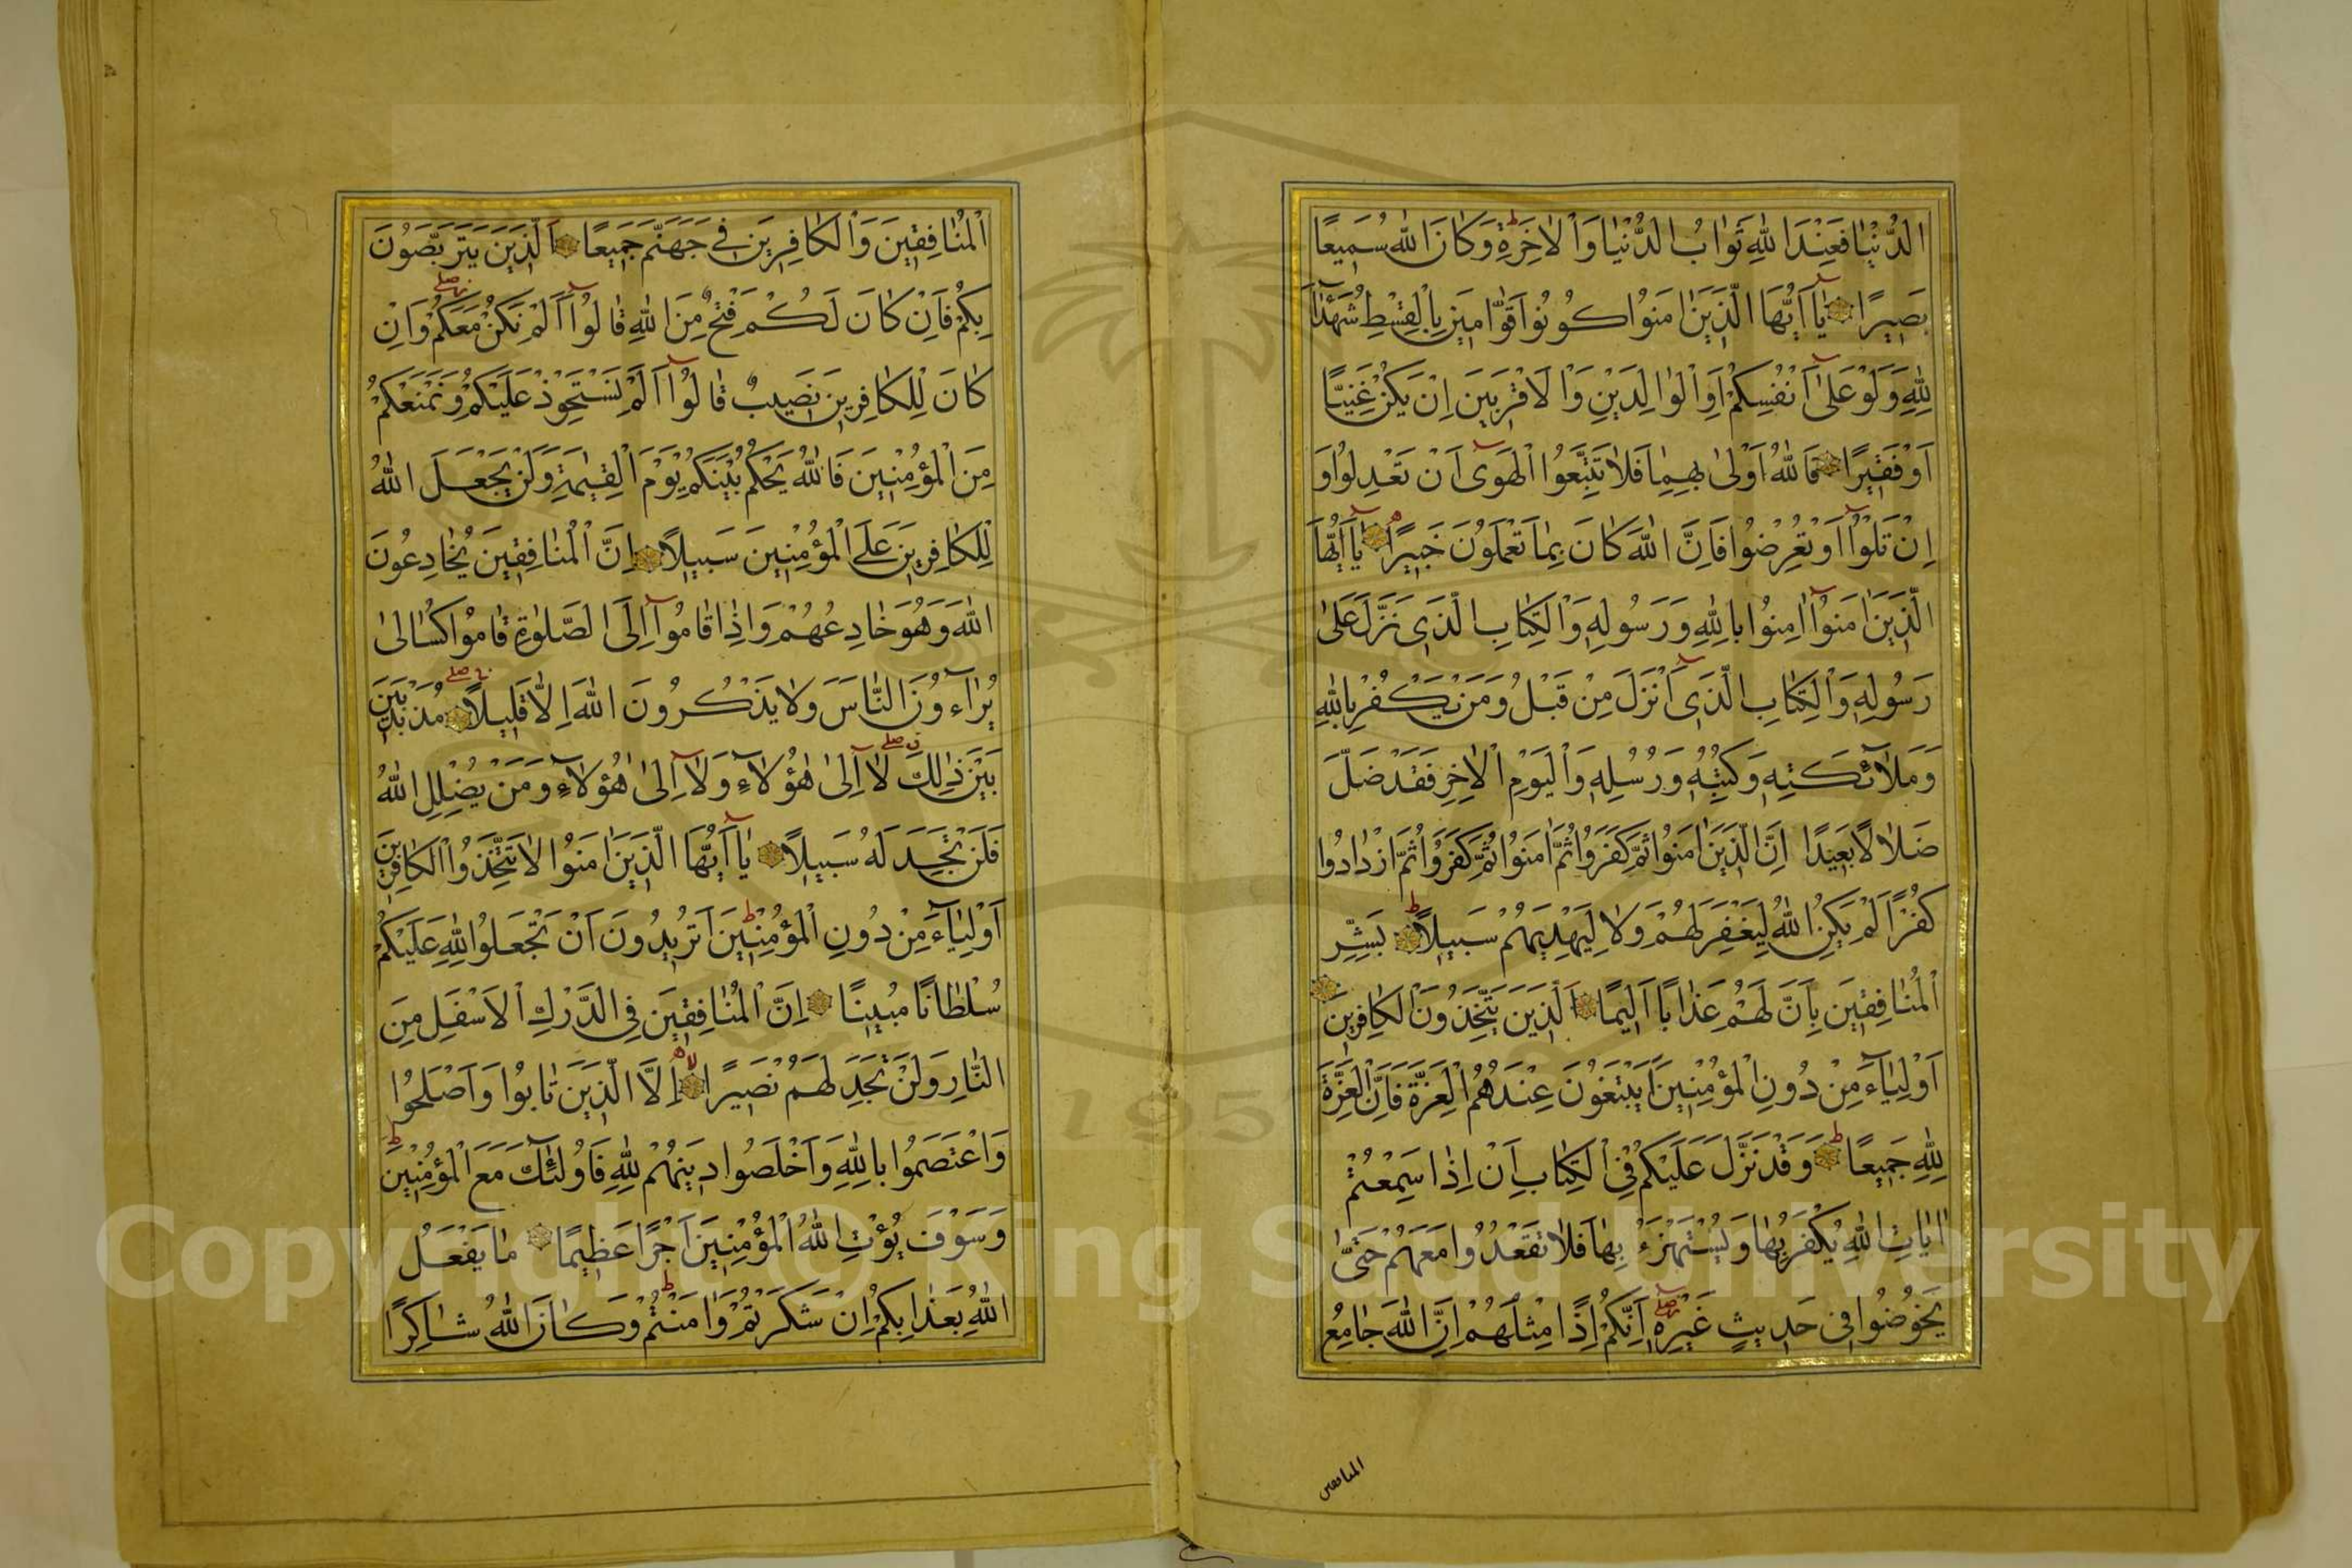 الدُّنْيَا فَعِنْدَ اللّٰهِ ثَوَابُ الدُّنْيَا وَالْاٰخِرَةِ وَكَانَ اللّٰهُ سَمِيعًا
بَصِيرًا يَٓا اَيُّهَا الَّذِينَ اٰمَنُوا كُونُوا قَوَّامِينَ بِالْقِسْطِ شُهَدَٓاءَ
لِلّٰهِ وَلَوْ عَلٰٓى اَنْفُسِكُمْ اَوِ الْوَالِدَيْنِ وَالْاَقْرَبِينَ اِنْ يَكُنْ غَنِيًّا
اَوْ فَقِيرًا فَاللّٰهُ اَوْلٰى بِهِمَا فَلَا تَتَّبِعُوا الْهَوٰٓى اَنْ تَعْدِلُوا وَ
اِنْ تَلْوُٓا اَوْ تُعْرِضُوا فَاِنَّ اللّٰهَ كَانَ بِمَا تَعْمَلُونَ خَبِيرًا يَٓا اَيُّهَا
الَّذِينَ اٰمَنُٓوا اٰمِنُوا بِاللّٰهِ وَرَسُولِهِ وَالْكِتَابِ الَّذِى نَزَّلَ عَلٰى
رَسُولِهِ وَالْكِتَابِ الَّذِٓى اَنْزَلَ مِنْ قَبْلُ وَمَنْ يَكْفُرْ بِاللّٰهِ
وَمَلٰٓائِكَتِهِ وَكُتُبِهِ وَرُسُلِهِ وَالْيَوْمِ الْاٰخِرِ فَقَدْ ضَلَّ
ضَلَالًا بَعِيدًا اِنَّ الَّذِينَ اٰمَنُوا ثُمَّ كَفَرُوا ثُمَّ اٰمَنُوا ثُمَّ كَفَرُوا ثُمَّ ازْدَادُوا
كُفْرًا لَمْ يَكُنِ اللّٰهُ لِيَغْفِرَ لَهُمْ وَلَا لِيَهْدِيَهُمْ سَبِيلًا بَشِّرِ
الْمُنَافِقِينَ بِاَنَّ لَهُمْ عَذَابًا اَلِيمًا اَلَّذِينَ يَتَّخِذُونَ الْكَافِرِينَ
اَوْلِيَٓاءَ مِنْ دُونِ الْمُؤْمِنِينَ اَيَبْتَغُونَ عِنْدَهُمُ الْعِزَّةَ فَاِنَّ الْعِزَّةَ
لِلّٰهِ جَمِيعًا وَقَدْ نَزَّلَ عَلَيْكُمْ فِى الْكِتَابِ اَنْ اِذَا سَمِعْتُمْ
اٰيَاتِ اللّٰهِ يُكْفَرُ بِهَا وَيُسْتَهْزَءُ بِهَا فَلَا تَقْعُدُوا مَعَهُمْ حَتّٰى
يَخُوضُوا فِى حَدِيثٍ غَيْرِهِٓ اِنَّكُمْ اِذًا مِثْلُهُمْ اِنَّ اللّٰهَ جَامِعُ
المنافقين
الْمُنَافِقِينَ وَالْكَافِرِينَ فِى جَهَنَّمَ جَمِيعًا اَلَّذِينَ يَتَرَبَّصُونَ
بِكُمْ فَاِنْ كَانَ لَكُمْ فَتْحٌ مِنَ اللّٰهِ قَالُٓوا اَلَمْ نَكُنْ مَعَكُمْ وَاِنْ
كَانَ لِلْكَافِرِينَ نَصِيبٌ قَالُٓوا اَلَمْ نَسْتَحْوِذْ عَلَيْكُمْ وَنَمْنَعْكُمْ
مِنَ الْمُؤْمِنِينَ فَاللّٰهُ يَحْكُمُ بَيْنَكُمْ يَوْمَ الْقِيٰمَةِ وَلَنْ يَجْعَلَ اللّٰهُ
لِلْكَافِرِينَ عَلَى الْمُؤْمِنِينَ سَبِيلًا اِنَّ الْمُنَافِقِينَ يُخَادِعُونَ
اللّٰهَ وَهُوَ خَادِعُهُمْ وَاِذَا قَامُٓوا اِلَى الصَّلٰوةِ قَامُوا كُسَالٰى
يُرَٓاءُونَ النَّاسَ وَلَا يَذْكُرُونَ اللّٰهَ اِلَّا قَلِيلًا مُذَبْذَبِينَ
بَيْنَ ذٰلِكَ لَٓا اِلٰى هٰٓؤُلَٓاءِ وَلَٓا اِلٰى هٰٓؤُلَٓاءِ وَمَنْ يُضْلِلِ اللّٰهُ
فَلَنْ تَجِدَ لَهُ سَبِيلًا يَٓا اَيُّهَا الَّذِينَ اٰمَنُوا لَا تَتَّخِذُوا الْكَافِرِينَ
اَوْلِيَٓاءَ مِنْ دُونِ الْمُؤْمِنِينَ اَتُرِيدُونَ اَنْ تَجْعَلُوا لِلّٰهِ عَلَيْكُمْ
سُلْطَانًا مُبِينًا اِنَّ الْمُنَافِقِينَ فِى الدَّرْكِ الْاَسْفَلِ مِنَ
النَّارِ وَلَنْ تَجِدَ لَهُمْ نَصِيرًا اِلَّا الَّذِينَ تَابُوا وَاَصْلَحُوا
وَاعْتَصَمُوا بِاللّٰهِ وَاَخْلَصُوا دِينَهُمْ لِلّٰهِ فَاُولٰٓئِكَ مَعَ الْمُؤْمِنِينَ
وَسَوْفَ يُؤْتِ اللّٰهُ الْمُؤْمِنِينَ اَجْرًا عَظِيمًا مَا يَفْعَلُ
اللّٰهُ بِعَذَابِكُمْ اِنْ شَكَرْتُمْ وَاٰمَنْتُمْ وَكَانَ اللّٰهُ شَاكِرًا
Copyright © King Saud University
195